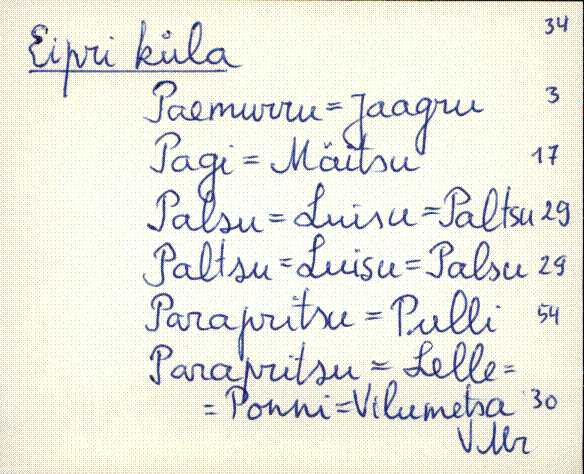 34
Eipri küla
Paemurru = Jaagru 3
Pagi = Mäitsu 17
Palsu = Luisu = Paltsu 29
Paltsu = Luisu = Palsu 29
Parapritsu = Pulli 54
Parapritsu = Lelle =
= Ponni = Vilumetsa 30
VMr